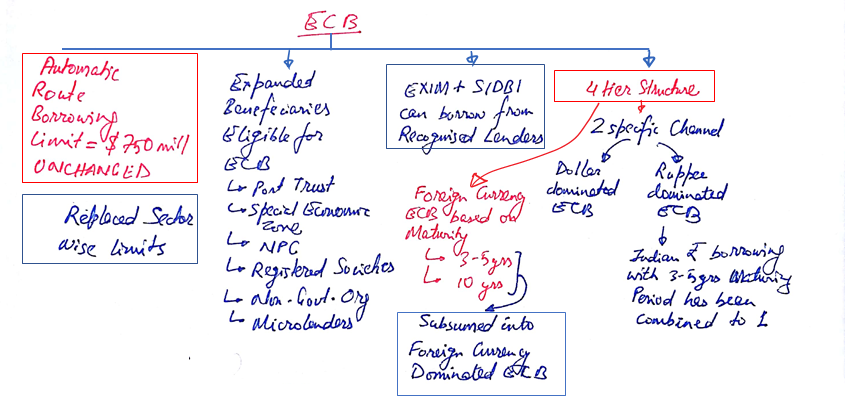 ECB
Automatic
Route
Borrowing
Limit = $ 750 mill
UNCHANGED
Replaced Sector
wise limits
Expanded
Benefeciaries
Eligible for
ECB
↳ Port Trust
↳ Special Economic
Zone
↳ NPC
↳ Registered Societies
↳ Non-Govt-Org
↳ Microlenders
EXIM + SIDBI
can borrow from
Recognised Lenders
4 tier Structure
2 specific Channel
Foreign Currency
ECB based on
Maturity
↳ 3-5 yrs
↳ 10 yrs
Subsumed into
Foreign Currency
Dominated ECB
Dollar
dominated
ECB
Ruppee
dominated
ECB
Indian ₹ borrowing
with 3-5 yrs Maturing
Period has been
combined to 1